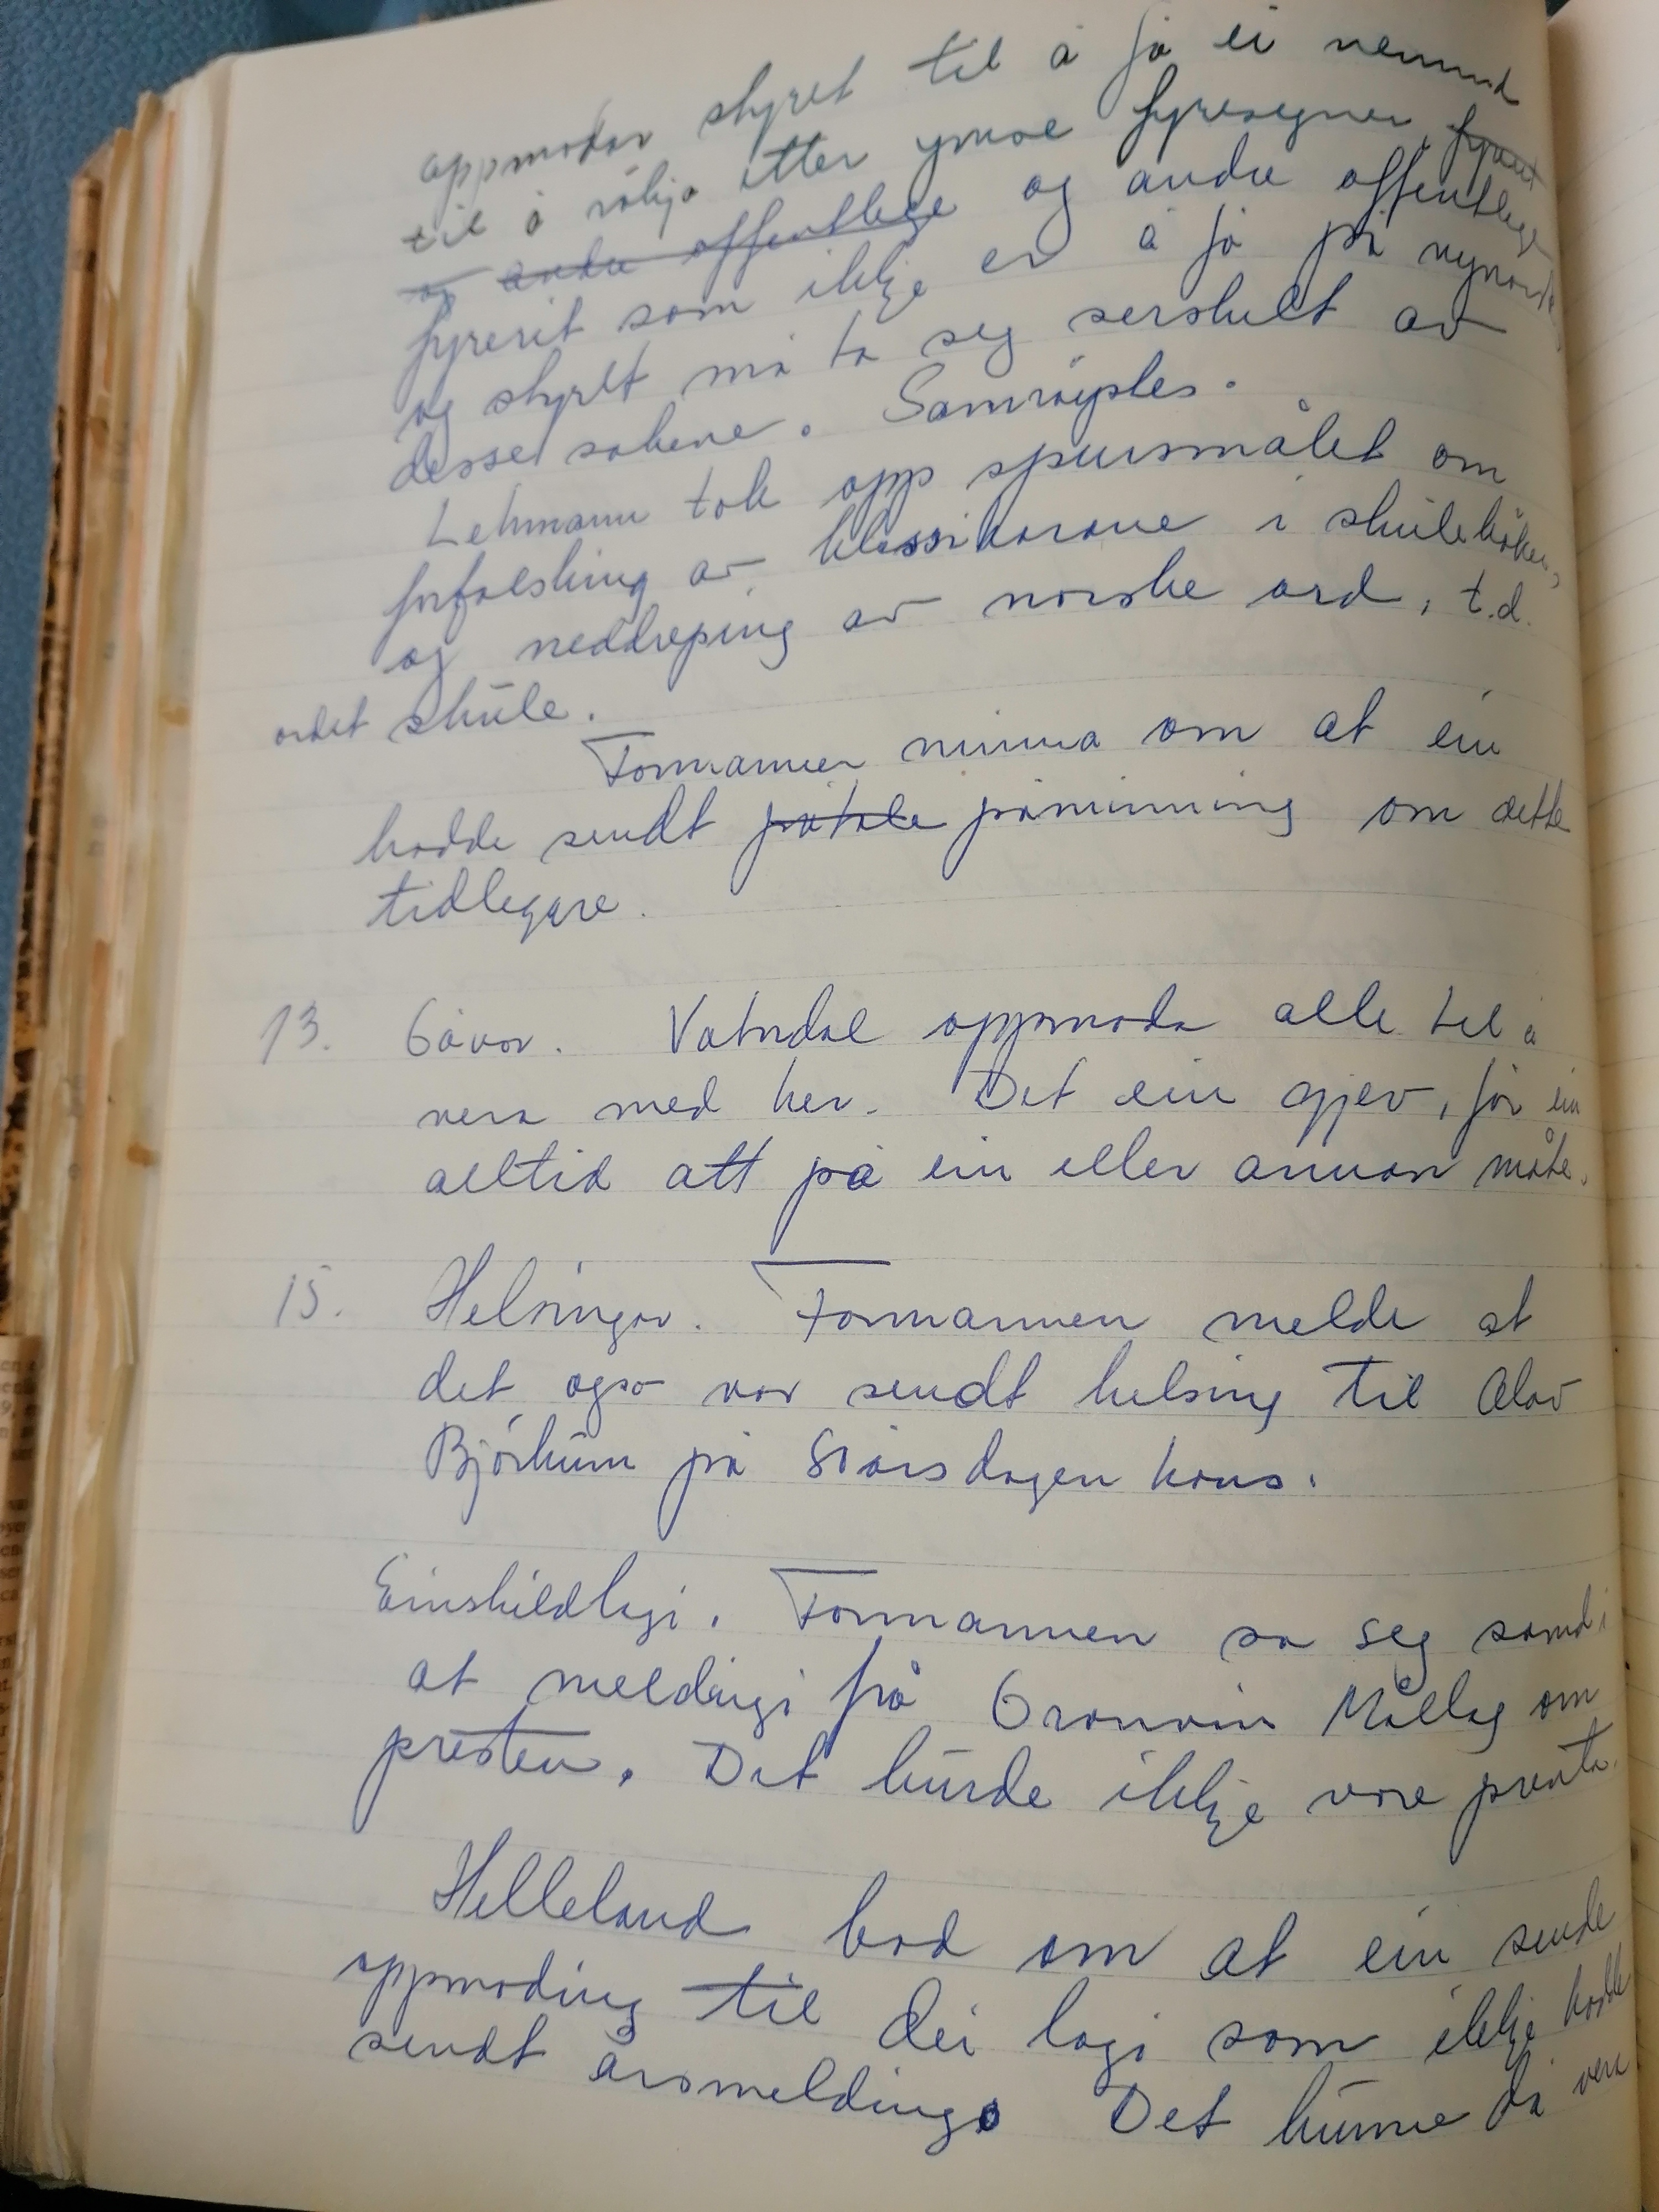 oppmodar styret til å få ei nemnd
til å røkja etter ymse fyresegner,
og andre offentlege og andre offentlege
fyrerit som ikkje er å få på nynorsk
og styret må ta seg serskilt av
desse sakene. Samrøystes.
Lehmann tok opp spursmålet om
forfalsking av klassikarane i skulebøker,
og neddreping av norske ord, t.d.
ordet skule.
Formannen minna om at ein
hadde sendt påtale påminning om dette
tidlegare.
13. Gåvor. Vatndal oppmoda alle til å
vera med her. Det ein gjev, får ein
alltid att på ein eller annan måte.
15. Helsingar. Formannen melde at
det også var sendt helsing til Olav
Bjørkum på 80årsdagen hans.
Einskildlagi. Formannen sa seg samd i
at meldingi frå Granvin Mållag om
presten. Det burde ikkje vore prenta.
Helleland bad om at ein sende
oppmoding til dei lagi som ikkje hadde
sendt årsmelding. Det kunne då vera